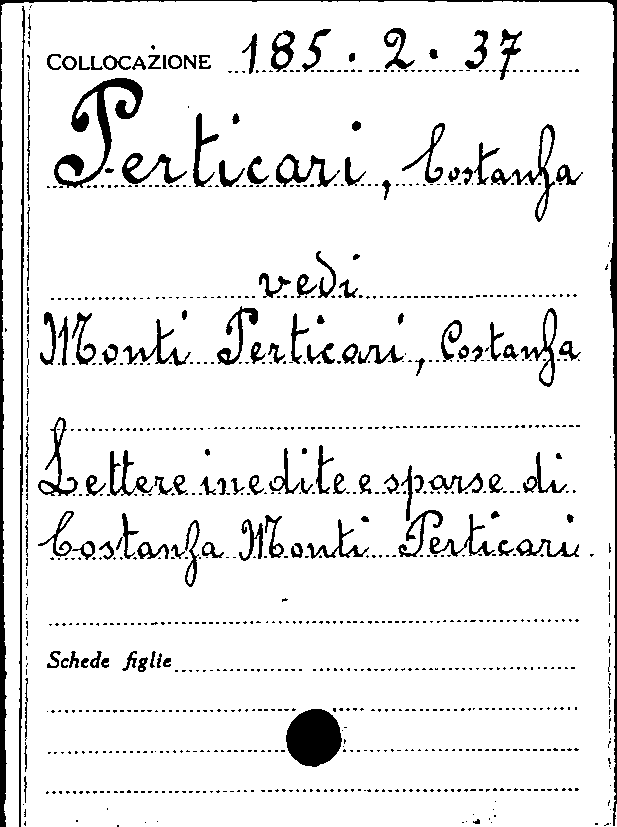 COLLOCAZIONE 185.2.37
Perticari, Costanza
vedi
Monti Perticari, Costanza
Lettere inedite e sparse di
Costanza Monti Perticari.
Schede figlie